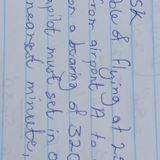 SK
ble of flying at 25
from airport A to
on a bearing of 320
pilot must set in o
nearest minute,